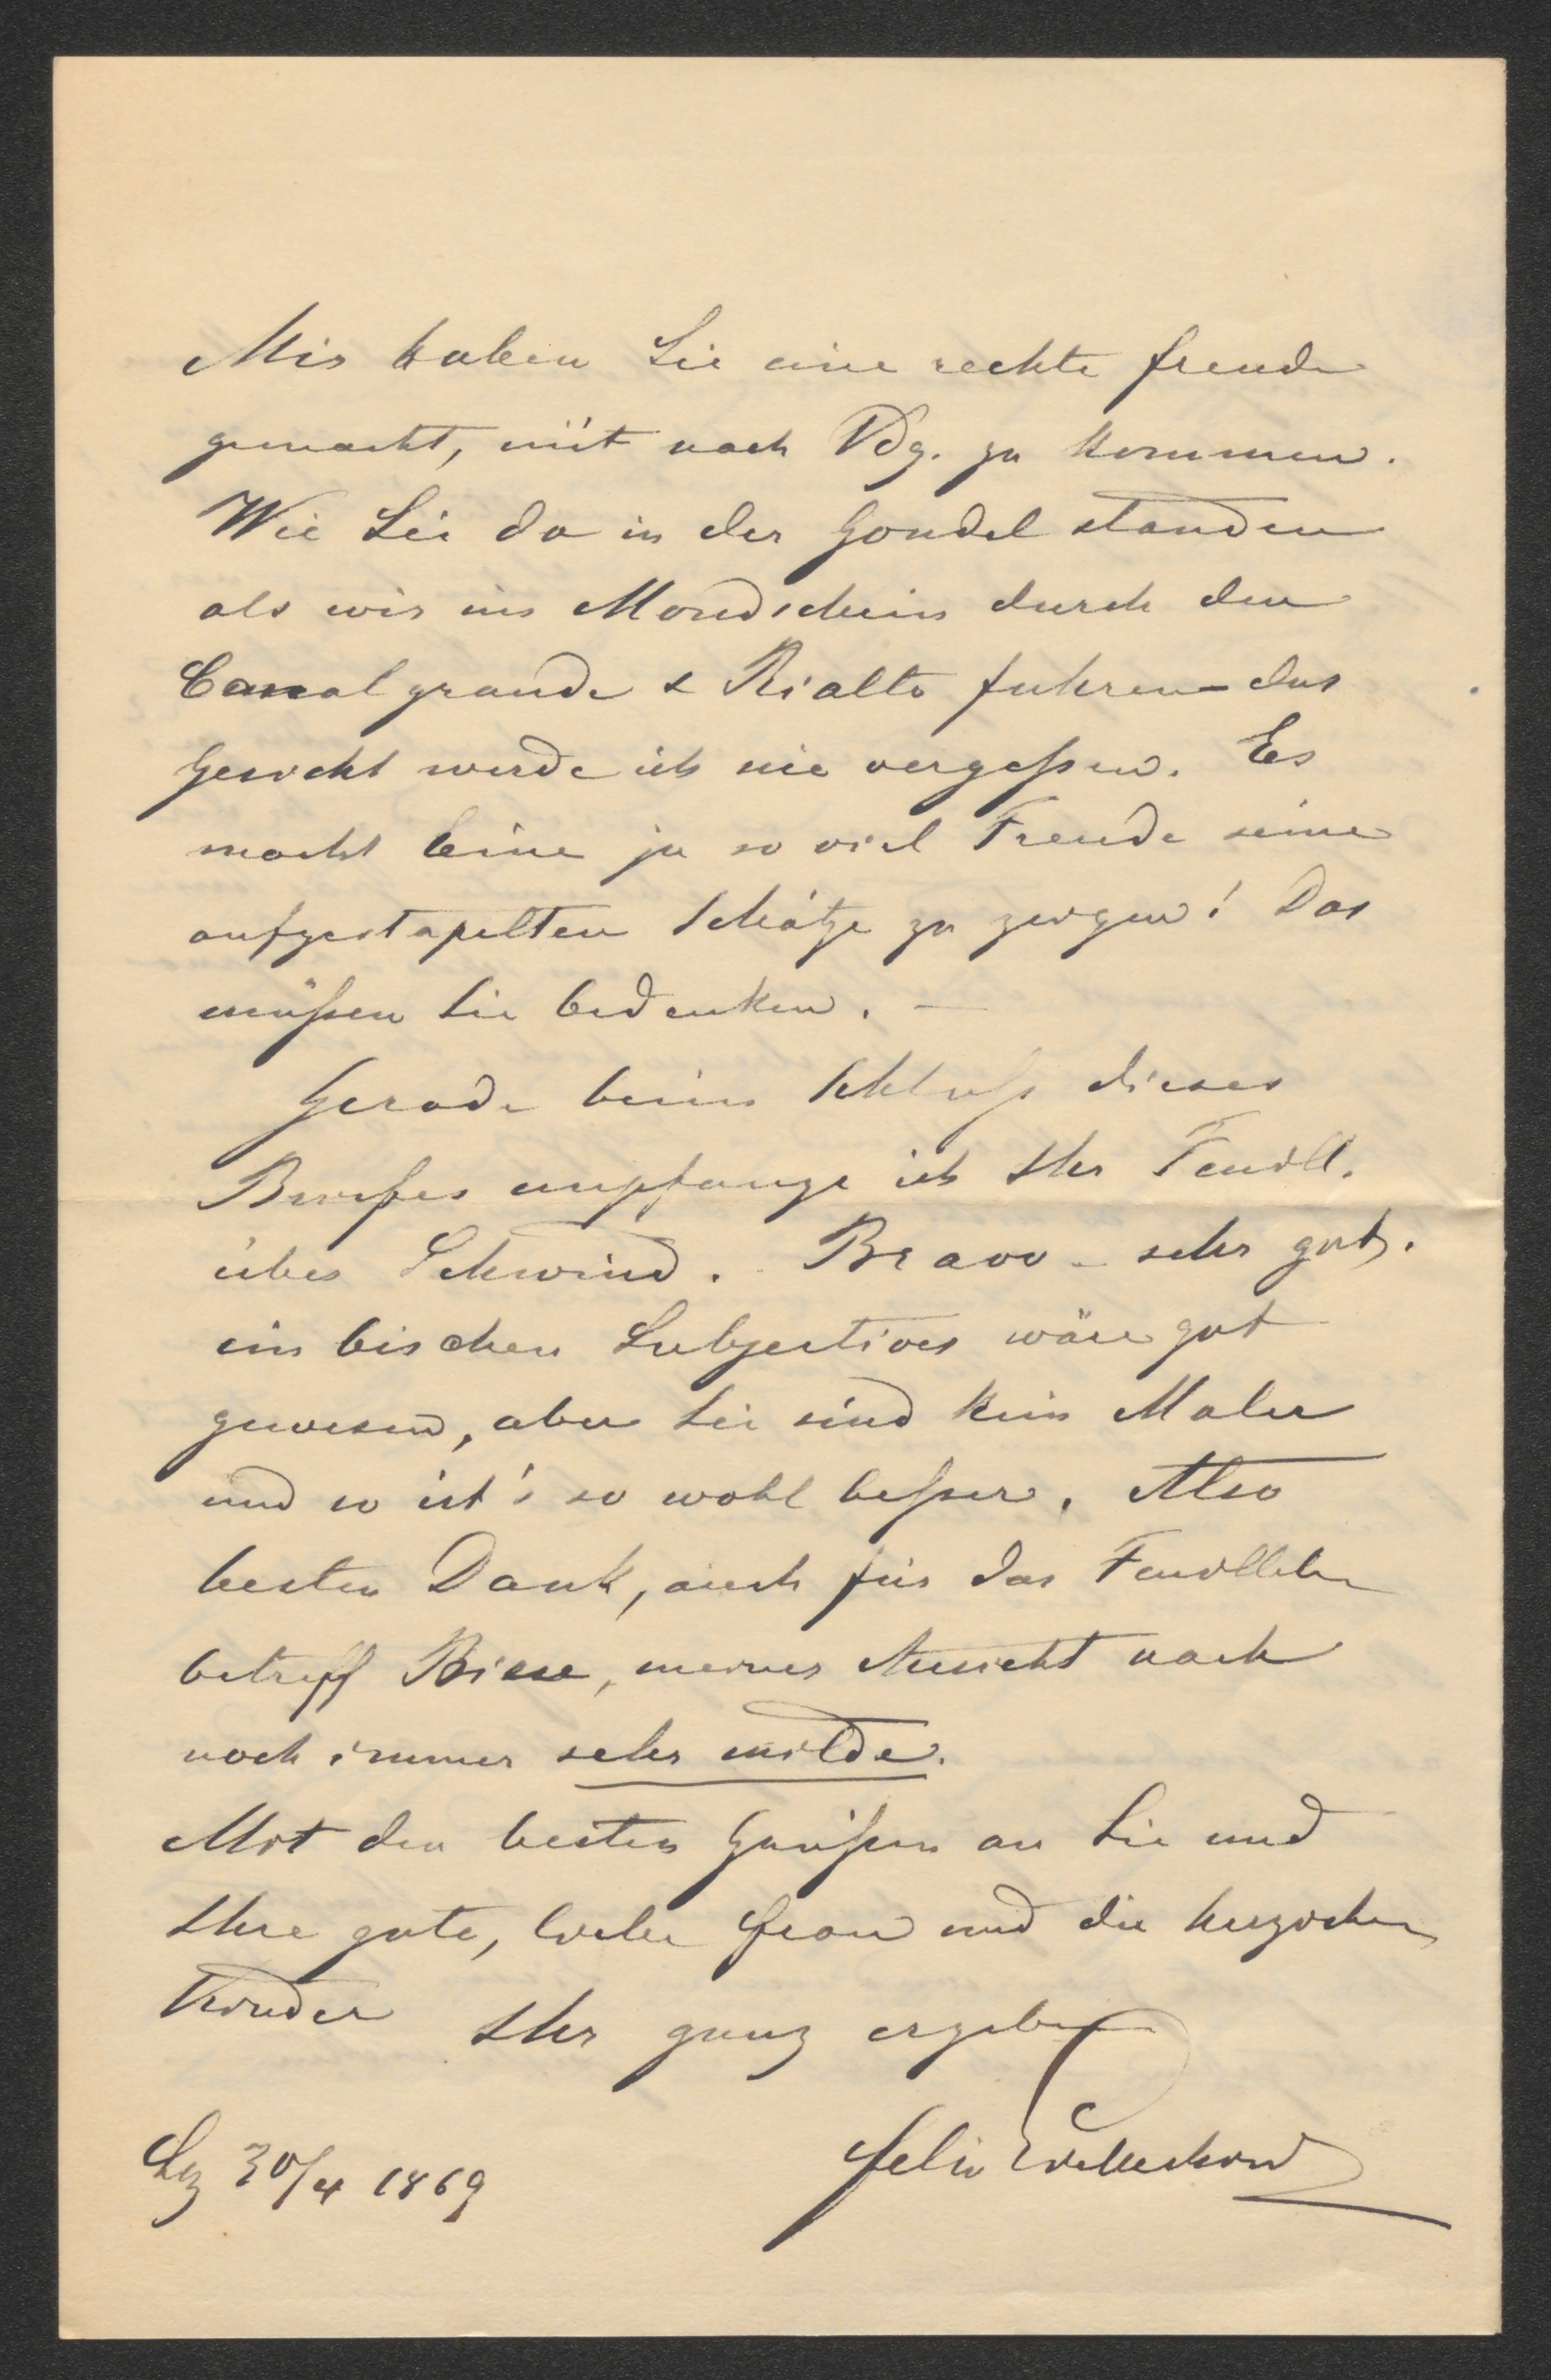 Mir haben Sie eine rechte Freude
gemacht, mit nach Vdg. zu kommen.
Wie Sie da in der Gondel standen
als wir im Mondschein durch den
Canal grande & Rialto fuhren – das
Gesicht werde ich nie vergeßen. Es
macht Eine ja so viel Freude seine
aufgestapelten Schätze zu zeigen! Das
müßen Sie bedenken. –
Gerade beim Schluß dieses
Briefes empfange ich Ihr Feuill.
über Schwind. Bravo – sehr gut.
ein bischen Subjectives wäre gut
gewesen, aber Sie sind kein Maler
und so ist's so wohl beßer. Also
besten Dank, auch für das Feuilleton
betreff Biese, meiner Ansicht nach
noch immer sehr milde.
Mit den besten Grüßen an Sie und
Ihre gute, liebe Frau und die herzichen
Kinder Ihr ganz ergeben
Lzg 30/4 1869 Felix